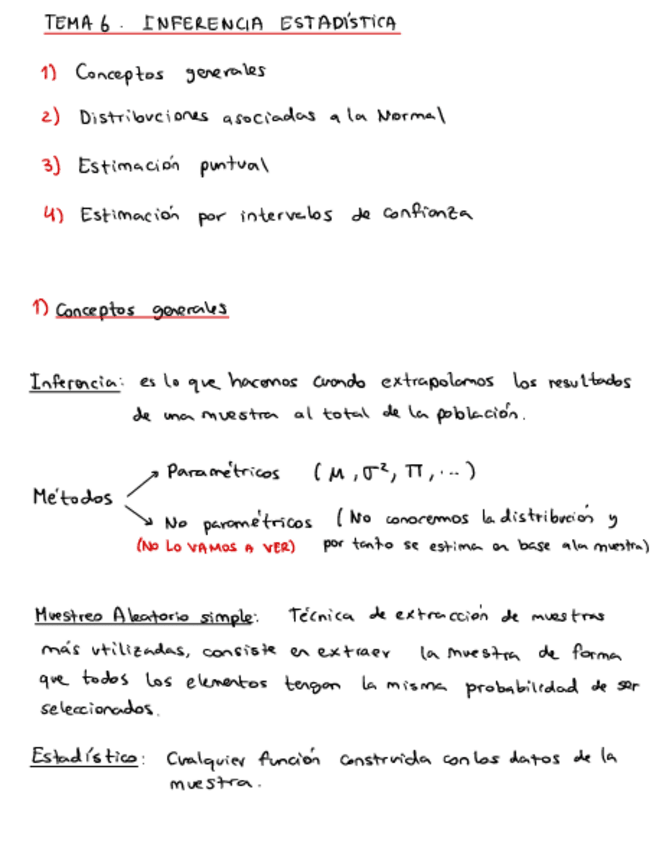 TEMA 6. INFERENCIA ESTADÍSTICA
1) Conceptos generales
2) Distribuciones asociadas a la Normal
3) Estimación puntual
4) Estimación por intervalos de confianza
1) Conceptos generales
Inferencia: es lo que hacemos cuando extrapolamos los resultados
de una muestra al total de la población.
Métodos
Paramétricos (μ, σ², π, ...)
No paramétricos (No conocemos la distribución y
(NO LO VAMOS A VER) por tanto se estima en base a la muestra)
Muestreo Aleatorio simple: Técnica de extracción de muestras
más utilizadas, consiste en extraer la muestra de forma
que todos los elementos tengan la misma probabilidad de ser
seleccionados.
Estadístico: Cualquier función construida con los datos de la
muestra.